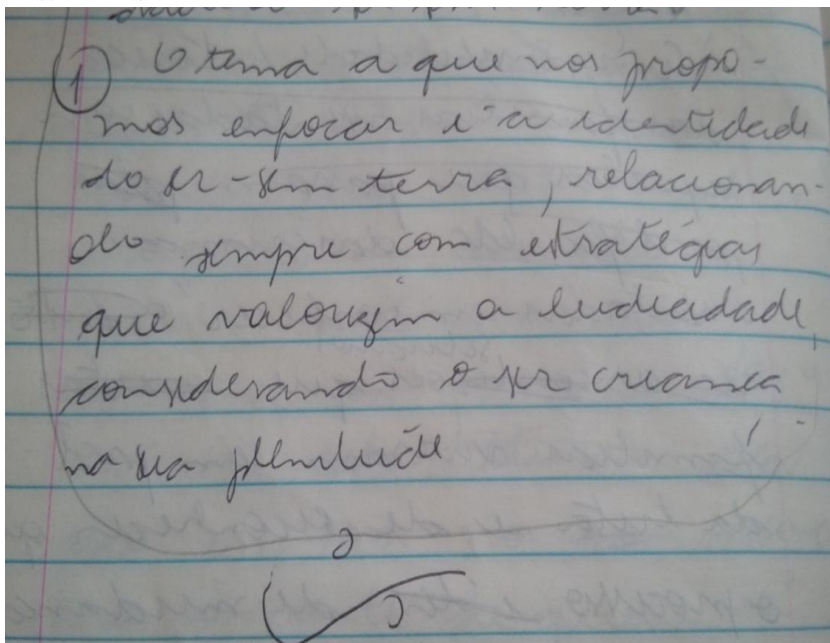 ① O tema a que nos propo-
mos enfocar é a identidade
do ser-sem terra, relacionan-
do sempre com estratégias
que valorizem a ludicidade,
considerando o ser criança
na sua plenitude